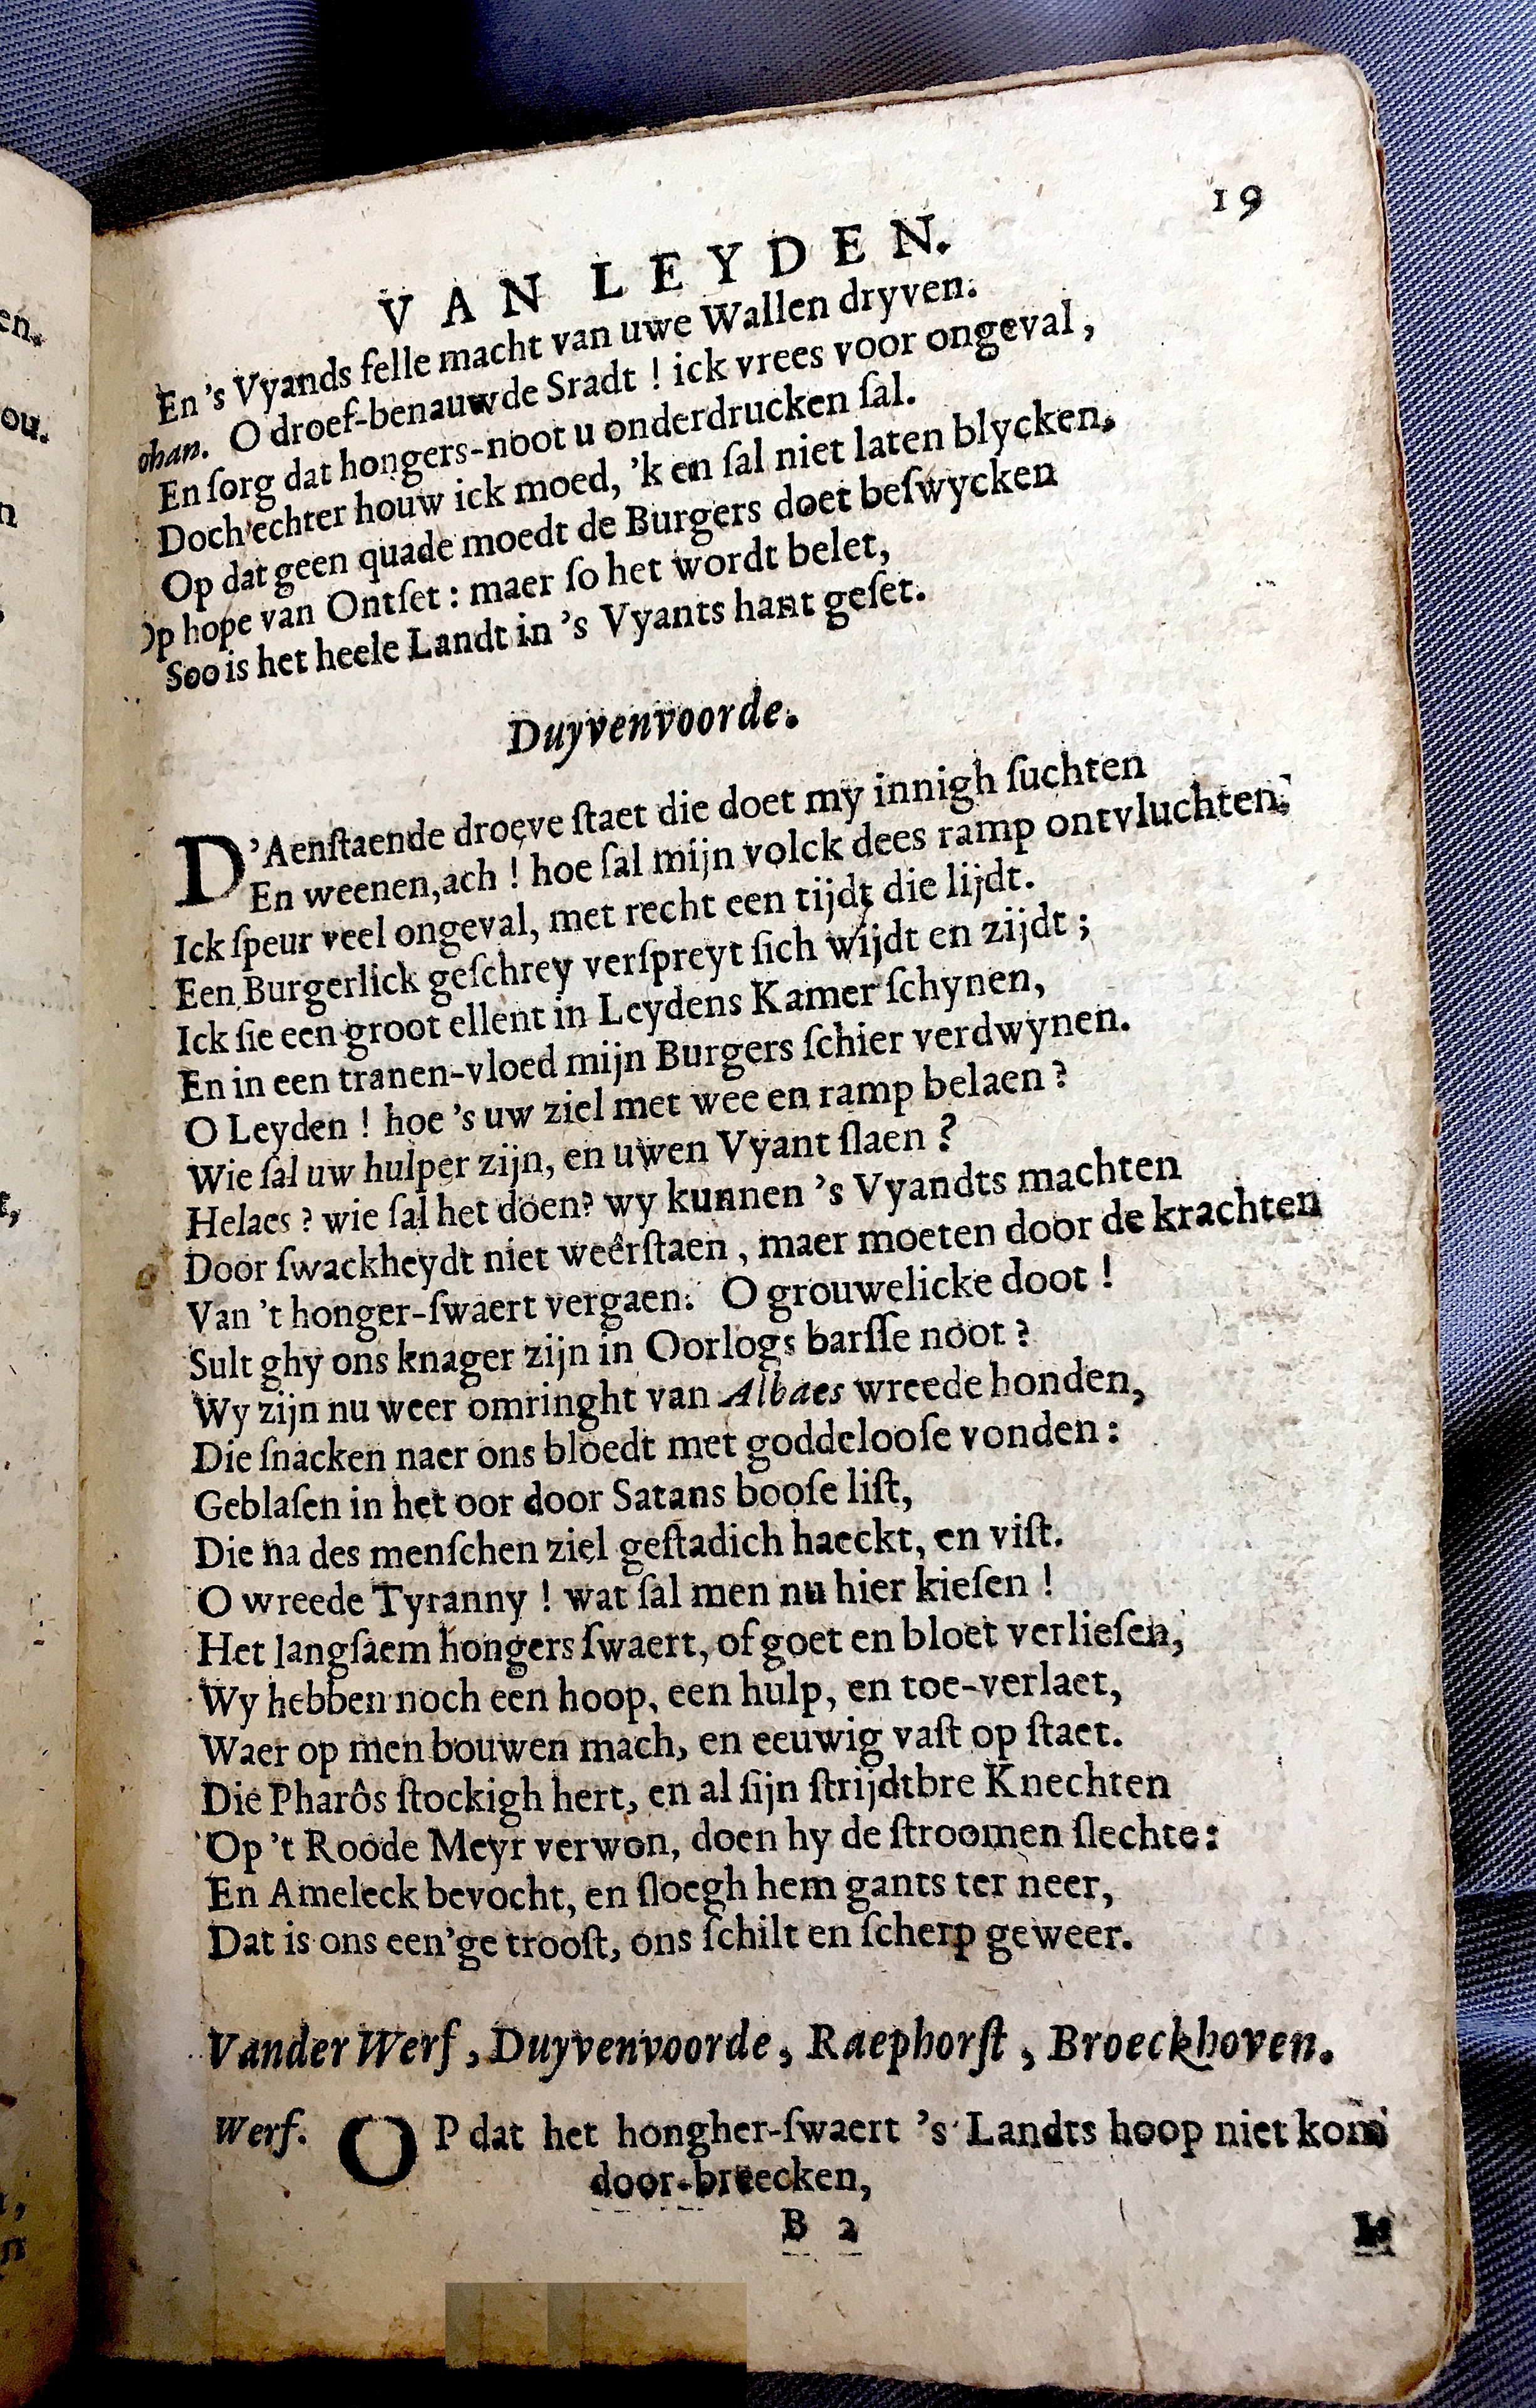 19
VAN LEYDEN.
En 's Vyands felle macht van uwe Wallen dryven.
ohan. O droef-benauwde Sradt ! ick vrees voor ongeval ,
En ſorg dat hongers-noot u onderdrucken ſal.
Doch echter houw ick moed, 'k en ſal niet laten blycken,
Op dat geen quade moedt de Burgers doet beſwycken
Op hope van Ontſet : maer ſo het wordt belet,
Soo is het heele Landt in 's Vyants hant geſet.
Duyvenvoorde.
D'Aenſtaende droeve ſtaet die doet my innigh ſuchten
En weenen, ach ! hoe ſal mijn volck dees ramp ontvluchten,
Ick ſpeur veel ongeval, met recht een tijdt die lijdt.
Een Burgerlick geſchrey verſpreyt ſich wijdt en zijdt ;
Ick ſie een groot ellent in Leydens Kamer ſchynen,
En in een tranen-vloed mijn Burgers ſchier verdwynen.
O Leyden ! hoe 's uw ziel met wee en ramp belaen ?
Wie ſal uw hulper zijn, en uwen Vyant ſlaen ?
Helaes ? wie ſal het doen? wy kunnen 's Vyandts machten
Door ſwackheydt niet weêrſtaen , maer moeten door de krachten
Van 't honger-ſwaert vergaen. O grouwelicke doot !
Sult ghy ons knager zijn in Oorlogs barſſe noot ?
Wy zijn nu weer omringht van Albaes wreede honden,
Die ſnacken naer ons bloedt met goddelooſe vonden :
Geblaſen in het oor door Satans booſe liſt,
Die na des menſchen ziel geſtadich haeckt, en viſt.
O wreede Tyranny ! wat ſal men nu hier kieſen !
Het langſaem hongers ſwaert, of goet en bloet verlieſen,
Wy hebben noch een hoop, een hulp, en toe-verlaet,
Waer op men bouwen mach, en eeuwig vaſt op ſtaet.
Die Pharôs ſtockigh hert, en al ſijn ſtrijdtbre Knechten
Op 't Roode Meyr verwon, doen hy de ſtroomen ſlechte:
En Ameleck bevocht, en ſloegh hem gants ter neer,
Dat is ons een'ge trooſt, ons ſchilt en ſcherp geweer.
Vander Werf , Duyvenvoorde , Raephorſt , Broeckhoven.
Werf. OP dat het hongher-ſwaert 's Landts hoop niet kom
door-breecken,
B 2